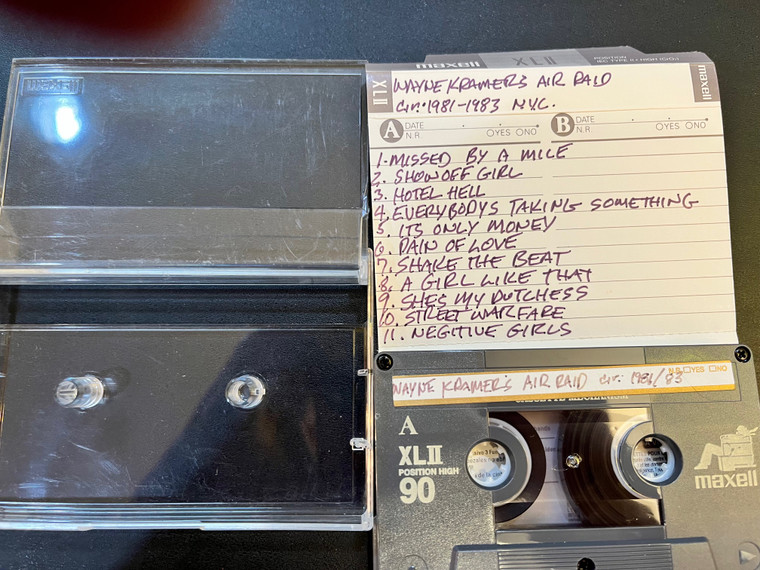 maxell
maxell XLII POSITION
XLII
maxell
WAYNE KRAMER'S AIR RAID
Cir. 1981-1983 NYC.
A DATE
N.R OYES ONO
B DATE
N.R OYES ONO
1. MISSED BY A MILE
2. SHOWOFF GIRL
3. HOTEL HELL
4. EVERYBODYS TAKING SOMETHING
5. ITS ONLY MONEY
6. PAIN OF LOVE
7. SHAKE THE BEAT
8. A GIRL LIKE THAT
9. SHES MY DUTCHESS
10. STREET WARFARE
11. NEGITIVE GIRLS
N.R YES NO
WAYNE KRAMER'S AIR RAID cir. 1981/83
CASSETTE MECHANISM
A
XLII
POSITION HIGH
90
maxell